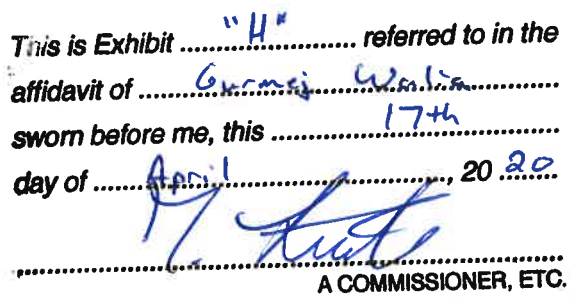 This is Exhibit "H" referred to in the
affidavit of Gurmej Walia
sworn before me, this 17th
day of April, 20 20
A COMMISSIONER, ETC.